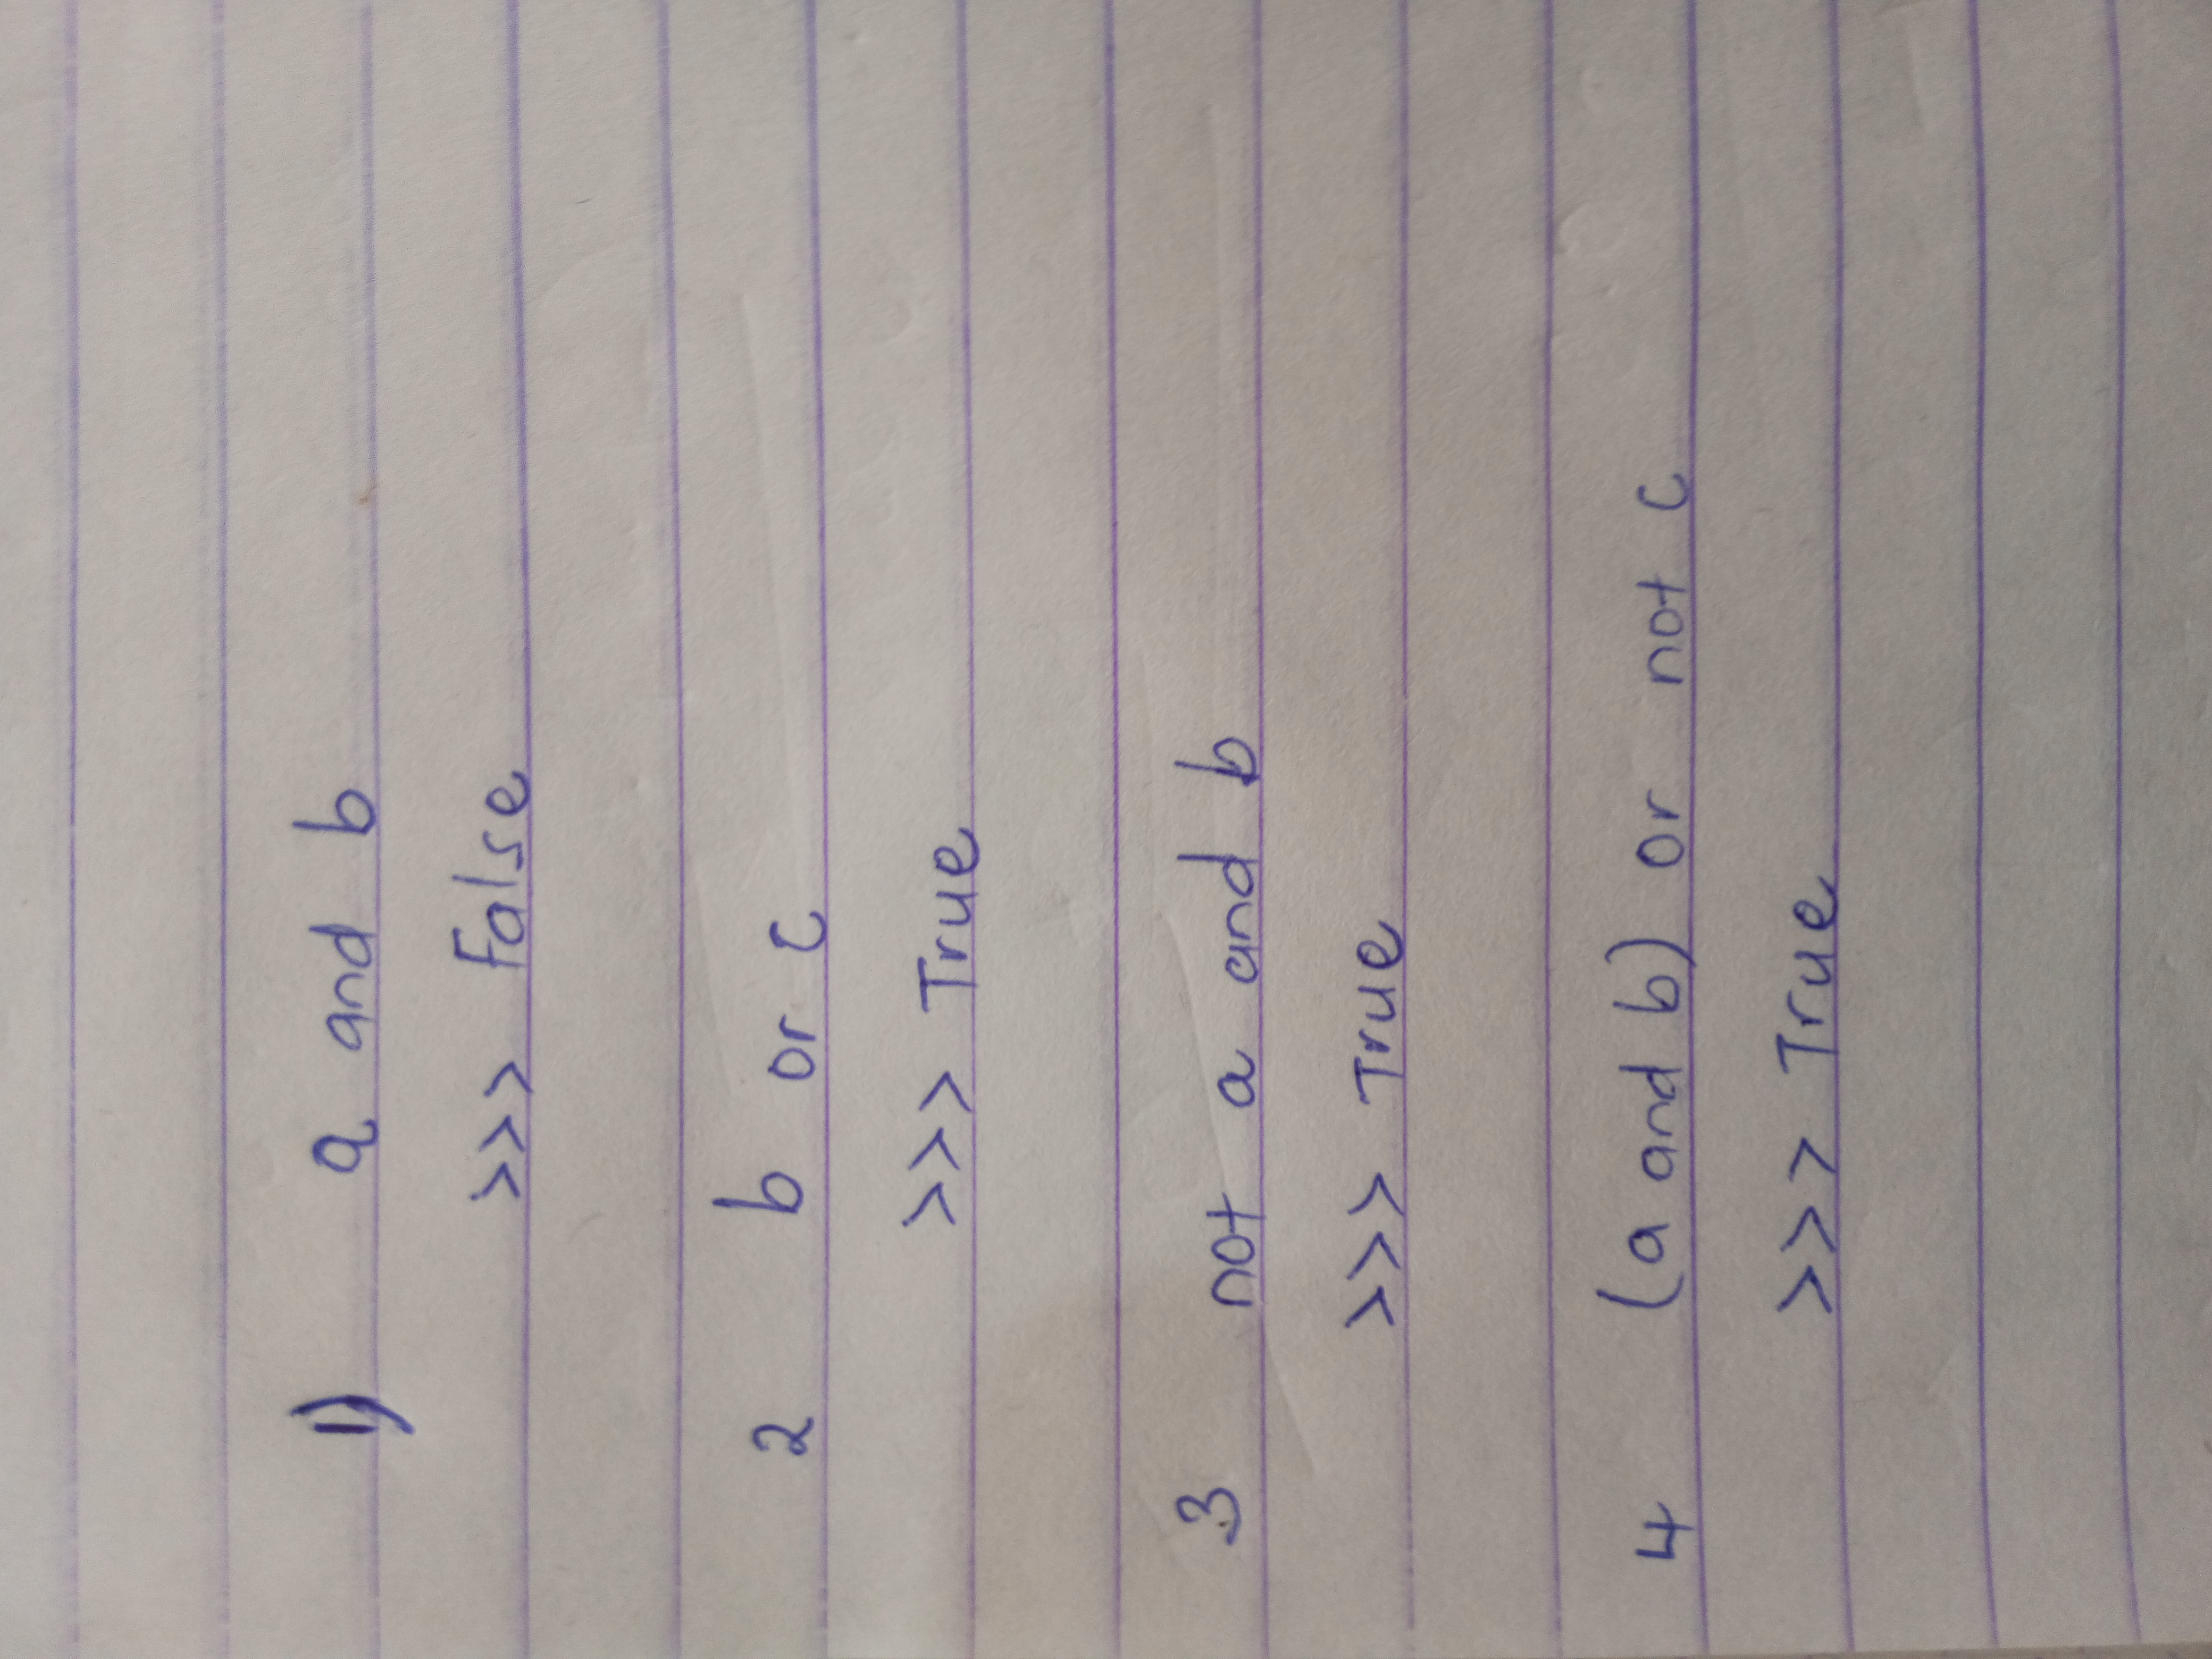 1) a and b
>>> False
2 b or c
>>> True
3 not a and b
>>> True
4 (a and b) or not c
>>> True